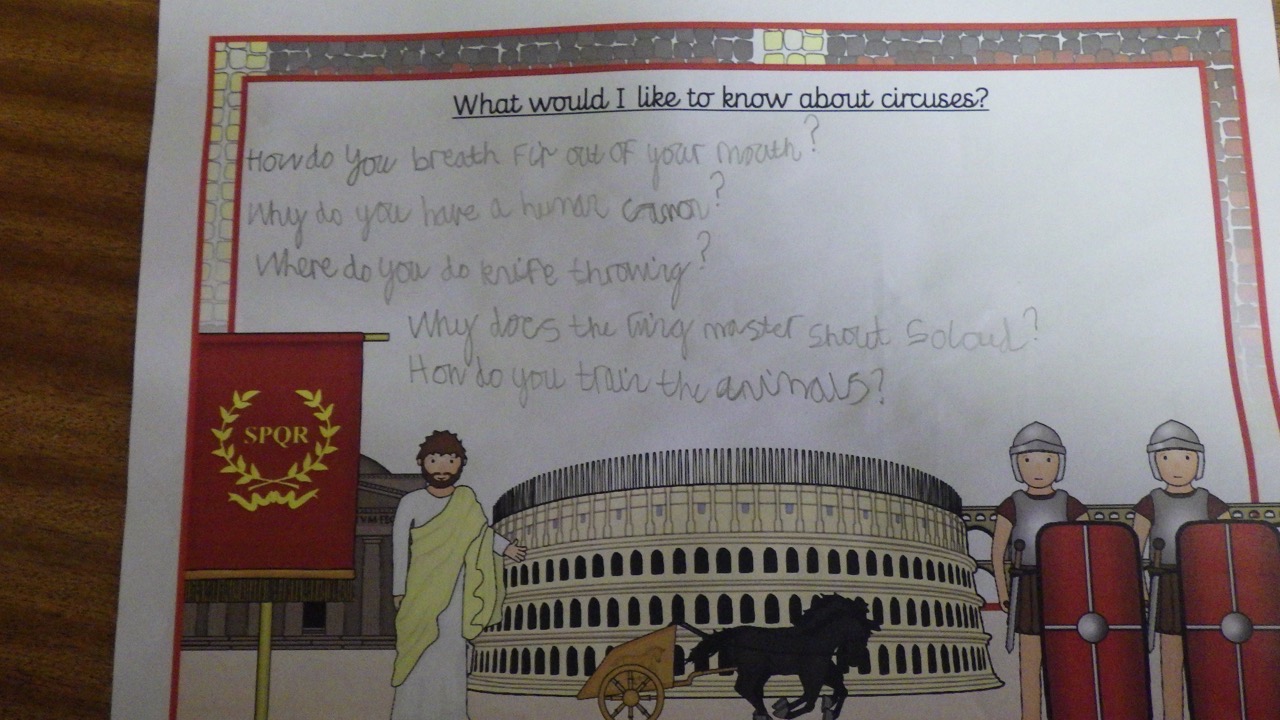 What would I like to know about circuses?
How do you breath Fir out of your mouth?
Why do you have a human canon?
Where do you do knife throwing?
Why does the ring master shout so loud?
How do you train the animals?
SPQR